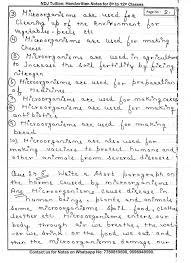 NSU Tuition Handwritten Notes for 8th to 12th Classes
Page No - 2
③ Microorganisms are used for
Cleaning up of the Environment for
Vegetable peels etc
Microorganisms are used for making
Cheese
⑤ Microorganisms are used in agriculture
to Increase the soil fertility by fixing
nitrogen
⑥ Microorganisms are used for preparation
of Medicine
Microorganisms are used for making
antibiotics
Microorganisms are used for making
bread
Microorganisms are also used for
making vaccines to protect humans and
other animals from several disease
Write a Short paragraph on
the harms caused by microorganisms
Ans. Microorganisms cause disease in
human beings, plants and animals
Some microorganisms spoil food, clothes
leather etc. Microorganisms enters our
body through air we breathe, the water
we drink or the food we eat and
then the microorganisms damage our
Contact us for Notes on Whatsapp No: